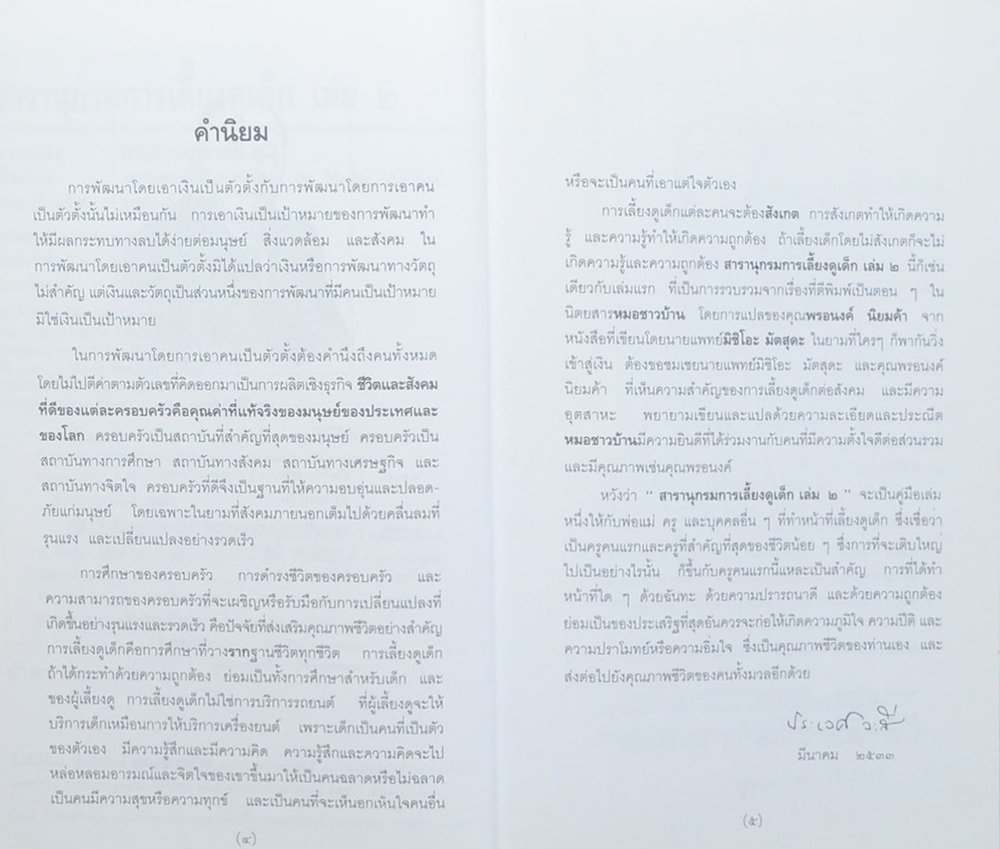 คำนิยม
การพัฒนาโดยเอาเงินเป็นตัวตั้งกับการพัฒนาโดยการเอาคน
เป็นตัวตั้งนั้นไม่เหมือนกัน การเอาเงินเป็นเป้าหมายของการพัฒนาทำ
ให้มีผลกระทบทางลบได้ง่ายต่อมนุษย์ สิ่งแวดล้อม และสังคม ใน
การพัฒนาโดยเอาคนเป็นตัวตั้งมิได้แปลว่าเงินหรือการพัฒนาทางวัตถุ
ไม่สำคัญ แต่เงินและวัตถุเป็นส่วนหนึ่งของการพัฒนาที่มีคนเป็นเป้าหมาย
มิใช่เงินเป็นเป้าหมาย
ในการพัฒนาโดยการเอาคนเป็นตัวตั้งต้องคำนึงถึงคนทั้งหมด
โดยไม่ไปตีค่าตามตัวเลขที่คิดออกมาเป็นการผลิตเชิงธุรกิจ ชีวิตและสังคม
ที่ดีของแต่ละครอบครัวคือคุณค่าที่แท้จริงของมนุษย์ของประเทศและ
ของโลก ครอบครัวเป็นสถาบันที่สำคัญที่สุดของมนุษย์ ครอบครัวเป็น
สถาบันทางการศึกษา สถาบันทางสังคม สถาบันทางเศรษฐกิจ และ
สถาบันทางจิตใจ ครอบครัวที่ดีจึงเป็นฐานที่ให้ความอบอุ่นและปลอด-
ภัยแก่มนุษย์ โดยเฉพาะในยามที่สังคมภายนอกเต็มไปด้วยคลื่นลมที่
รุนแรง และเปลี่ยนแปลงอย่างรวดเร็ว
การศึกษาของครอบครัว การดำรงชีวิตของครอบครัว และ
ความสามารถของครอบครัวที่จะเผชิญหรือรับมือกับการเปลี่ยนแปลงที่
เกิดขึ้นอย่างรุนแรงและรวดเร็ว คือปัจจัยที่ส่งเสริมคุณภาพชีวิตอย่างสำคัญ
การเลี้ยงดูเด็กคือการศึกษาที่วางรากฐานชีวิตทุกชีวิต การเลี้ยงดูเด็ก
ถ้าได้กระทำด้วยความถูกต้อง ย่อมเป็นทั้งการศึกษาสำหรับเด็ก และ
ของผู้เลี้ยงดู การเลี้ยงดูเด็กไม่ใช่การบริการรถยนต์ ที่ผู้เลี้ยงดูจะให้
บริการเด็กเหมือนการให้บริการเครื่องยนต์ เพราะเด็กเป็นคนที่เป็นตัว
ของตัวเอง มีความรู้สึกและมีความคิด ความรู้สึกและความคิดจะไป
หล่อหลอมอารมณ์และจิตใจของเขาขึ้นมาให้เป็นคนฉลาดหรือไม่ฉลาด
เป็นคนมีความสุขหรือความทุกข์ และเป็นคนที่จะเห็นอกเห็นใจคนอื่น
(๔)
หรือจะเป็นคนที่เอาแต่ใจตัวเอง
การเลี้ยงดูเด็กแต่ละคนจะต้องสังเกต การสังเกตทำให้เกิดความ
รู้ และความรู้ทำให้เกิดความถูกต้อง ถ้าเลี้ยงเด็กโดยไม่สังเกตก็จะไม่
เกิดความรู้และความถูกต้อง สารานุกรมการเลี้ยงดูเด็ก เล่ม ๒ นี้ก็เช่น
เดียวกับเล่มแรก ที่เป็นการรวบรวมจากเรื่องที่ตีพิมพ์เป็นตอน ๆ ใน
นิตยสารหมอชาวบ้าน โดยการแปลของคุณพรอนงค์ นิยมค้า จาก
หนังสือที่เขียนโดยนายแพทย์มิชิโอะ มัตสุดะ ในยามที่ใครๆ ก็พากันวิ่ง
เข้าสู่เงิน ต้องขอชมเชยนายแพทย์มิชิโอะ มัตสุดะ และคุณพรอนงค์
นิยมค้า ที่เห็นความสำคัญของการเลี้ยงดูเด็กต่อสังคม และมีความ
อุตสาหะ พยายามเขียนและแปลด้วยความละเอียดและประณีต
หมอชาวบ้านมีความยินดีที่ได้ร่วมงานกับคนที่มีความตั้งใจดีต่อส่วนรวม
และมีคุณภาพเช่นคุณพรอนงค์
หวังว่า " สารานุกรมการเลี้ยงดูเด็ก เล่ม ๒ " จะเป็นคู่มือเล่ม
หนึ่งให้กับพ่อแม่ ครู และบุคคลอื่น ๆ ที่ทำหน้าที่เลี้ยงดูเด็ก ซึ่งเชื่อว่า
เป็นครูคนแรกและครูที่สำคัญที่สุดของชีวิตน้อย ๆ ซึ่งการที่จะเติบใหญ่
ไปเป็นอย่างไรนั้น ก็ขึ้นกับครูคนแรกนี้แหละเป็นสำคัญ การที่ได้ทำ
หน้าที่ใด ๆ ด้วยฉันทะ ด้วยความปรารถนาดี และด้วยความถูกต้อง
ย่อมเป็นของประเสริฐที่สุดอันควรจะก่อให้เกิดความภูมิใจ ความปีติ และ
ความปราโมทย์หรือความอิ่มใจ ซึ่งเป็นคุณภาพชีวิตของท่านเอง และ
ส่งต่อไปยังคุณภาพชีวิตของคนทั้งมวลอีกด้วย
ประเวศ วะสี
มีนาคม ๒๕๓๓
(๕)